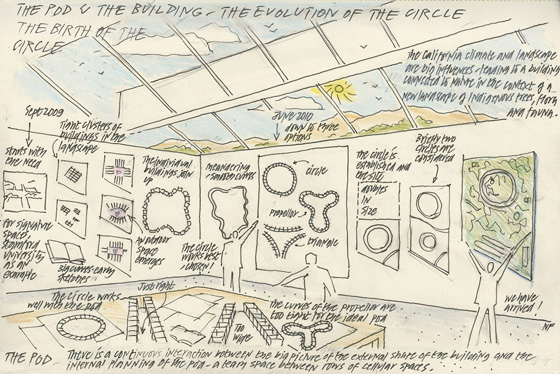 THE POD & THE BUILDING - THE EVOLUTION OF THE CIRCLE
THE BIRTH OF THE
CIRCLE
The California climate and landscape
are big influences - leading to a building
connected to nature in the context of a
new landscape of indigenous trees, flora
and fauna.
Sept 2009
Tight clusters of
buildings in the
landscape
JUNE 2010
down to three
options
Briefly two
circles are
considered
starts with
the need
The individual
buildings join
up
Meandering
smooth curves
circle
propellor
triangle
The circle is
established and
the site
in
size
for signature
space
Stanford
University
as an
example
early
sketches
An interior
space
emerges
The circle
works best
we have
arrived!
The circle works
well with the pod
Just right
Too
wide
The curves of the propellor are
too tight for the ideal pod
THE POD There is a continuous interaction between the big picture of the external shape of the building and the
internal planning of the pod - a team space between rows of cellular spaces.
NF